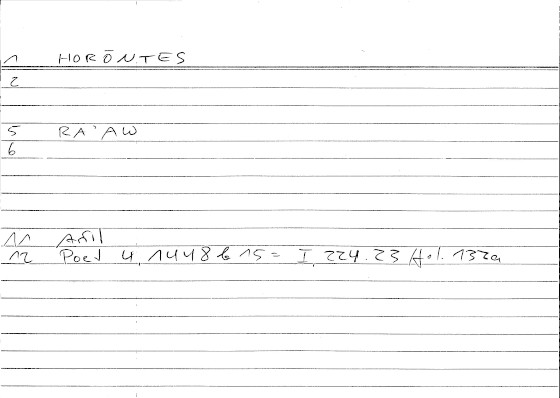 1 HORŌNTES
2
5 RA'AW
6
11 Ařil
12 Poet 4, 1448 b 15 = I, 224.23 fol. 132a